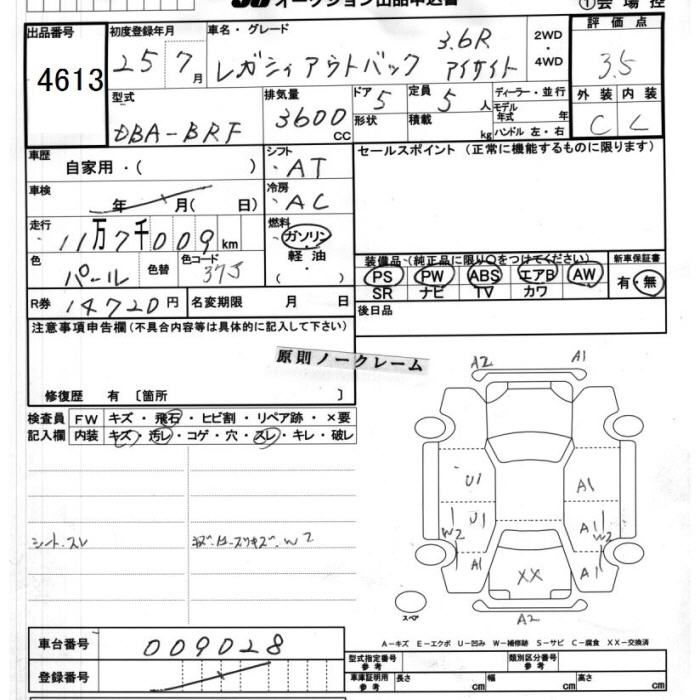 オークション出品申込書
①会 場 控
出品番号
4613
初度登録年月
25 7月
車名・グレード
レガシィアウトバック 3.6R アイサイト
2WD
・
4WD
評 価 点
3.5
外 装 内 装
C C
型式
DBA-BRF
排気量
3600 CC
ドア 5
形状
定員 5 人
積載 kg
ディーラー・並行
モデル年式 年
ハンドル 左・右
車歴
自家用・( )
シフト
AT
セールスポイント (正常に機能するものに限ります)
車検
年 月( 日)
冷房
AC
走行
11万7千009km
燃料
ガソリン
軽 油
( )
色
パール
色替
色コード
37J
装備品 (純正品に限り○をつけてください)
PS PW ABS エアB AW
SR ナビ TV カワ
新車保証書
有・無
R券 14720円
名変期限 月 日
後日品
注意事項申告欄 (不具合内容等は具体的に記入して下さい)
原則ノークレーム
修復歴 有 〔箇所 〕
検査員 FW キズ・飛石・ヒビ割・リペア跡・×要
記入欄 内装 キズ・汚レ・コゲ・穴・スレ・キレ・破レ
シート.スレ
W2
A2 A1
U1 A1
U1 A1
W2 W2
A1 A1
XX
スペア
A2
A-キズ E-エクボ U-凹み W-補修跡 S-サビ C-腐食 XX-交換済
車台番号 009028
登録番号
型式指定番号
参考
類別区分番号
参考
車庫証明用
参考
長さ cm 幅 cm 高さ cm